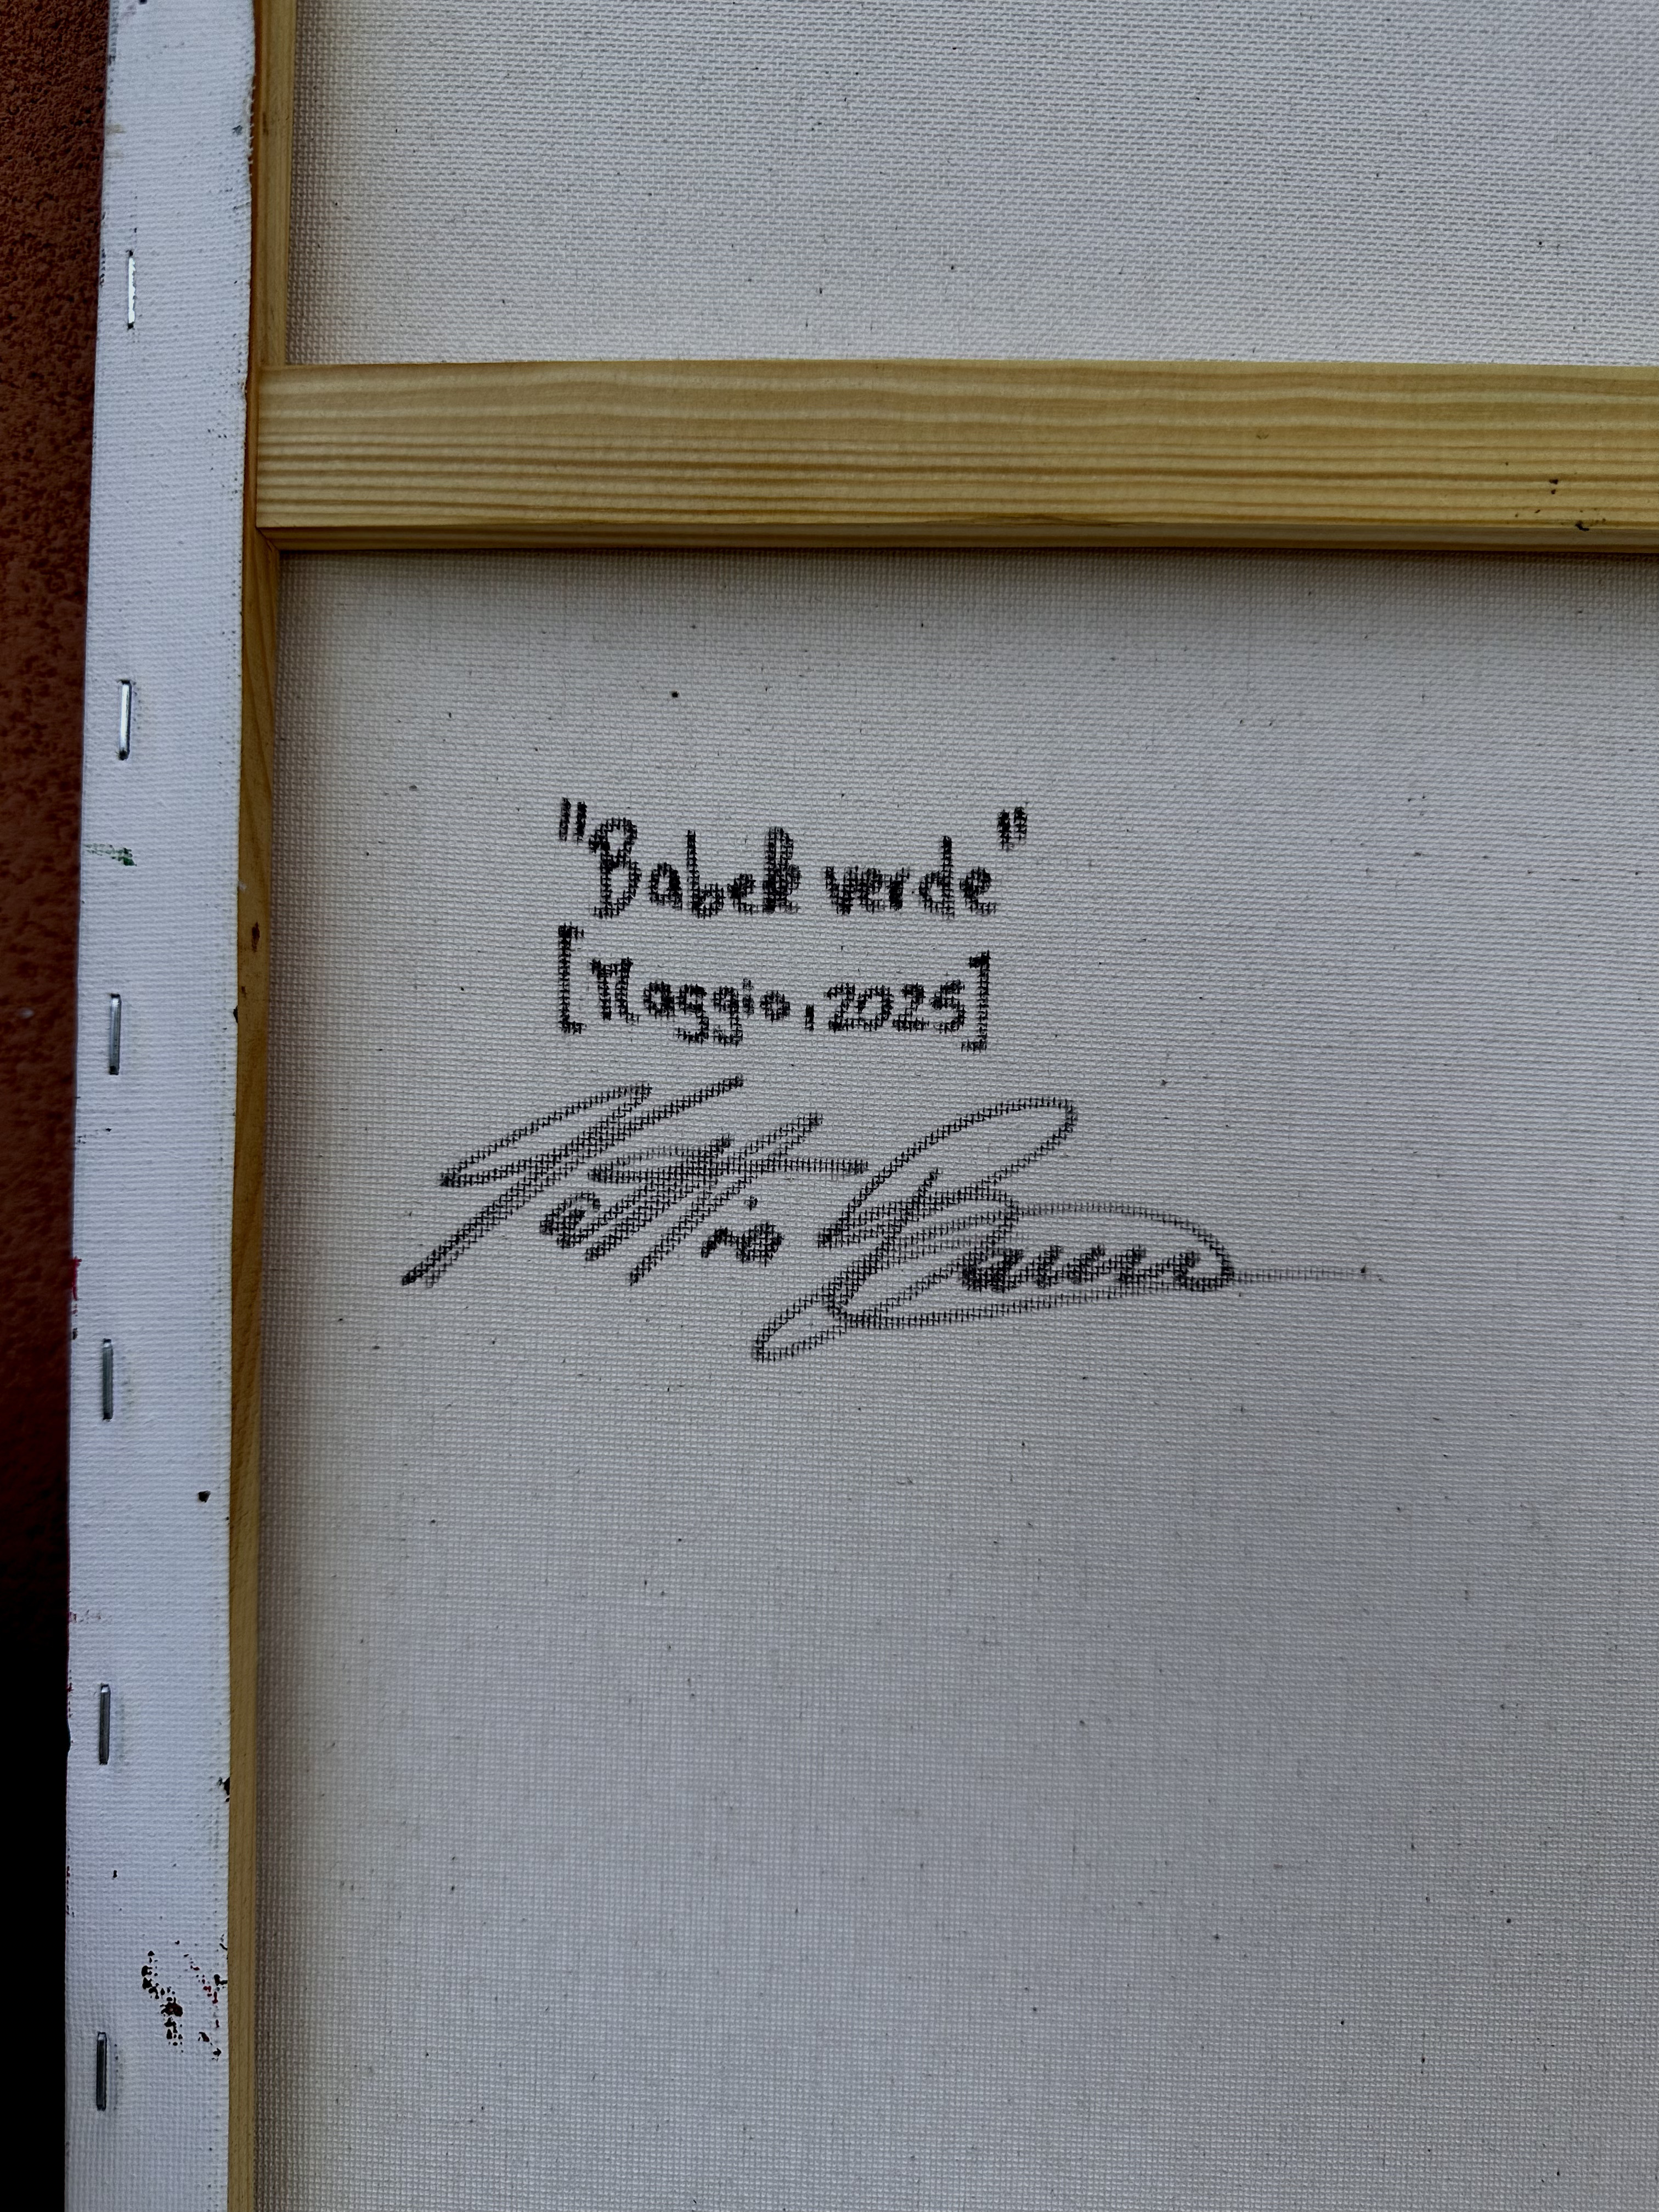 "Babele verde"
[Maggio, 2025]